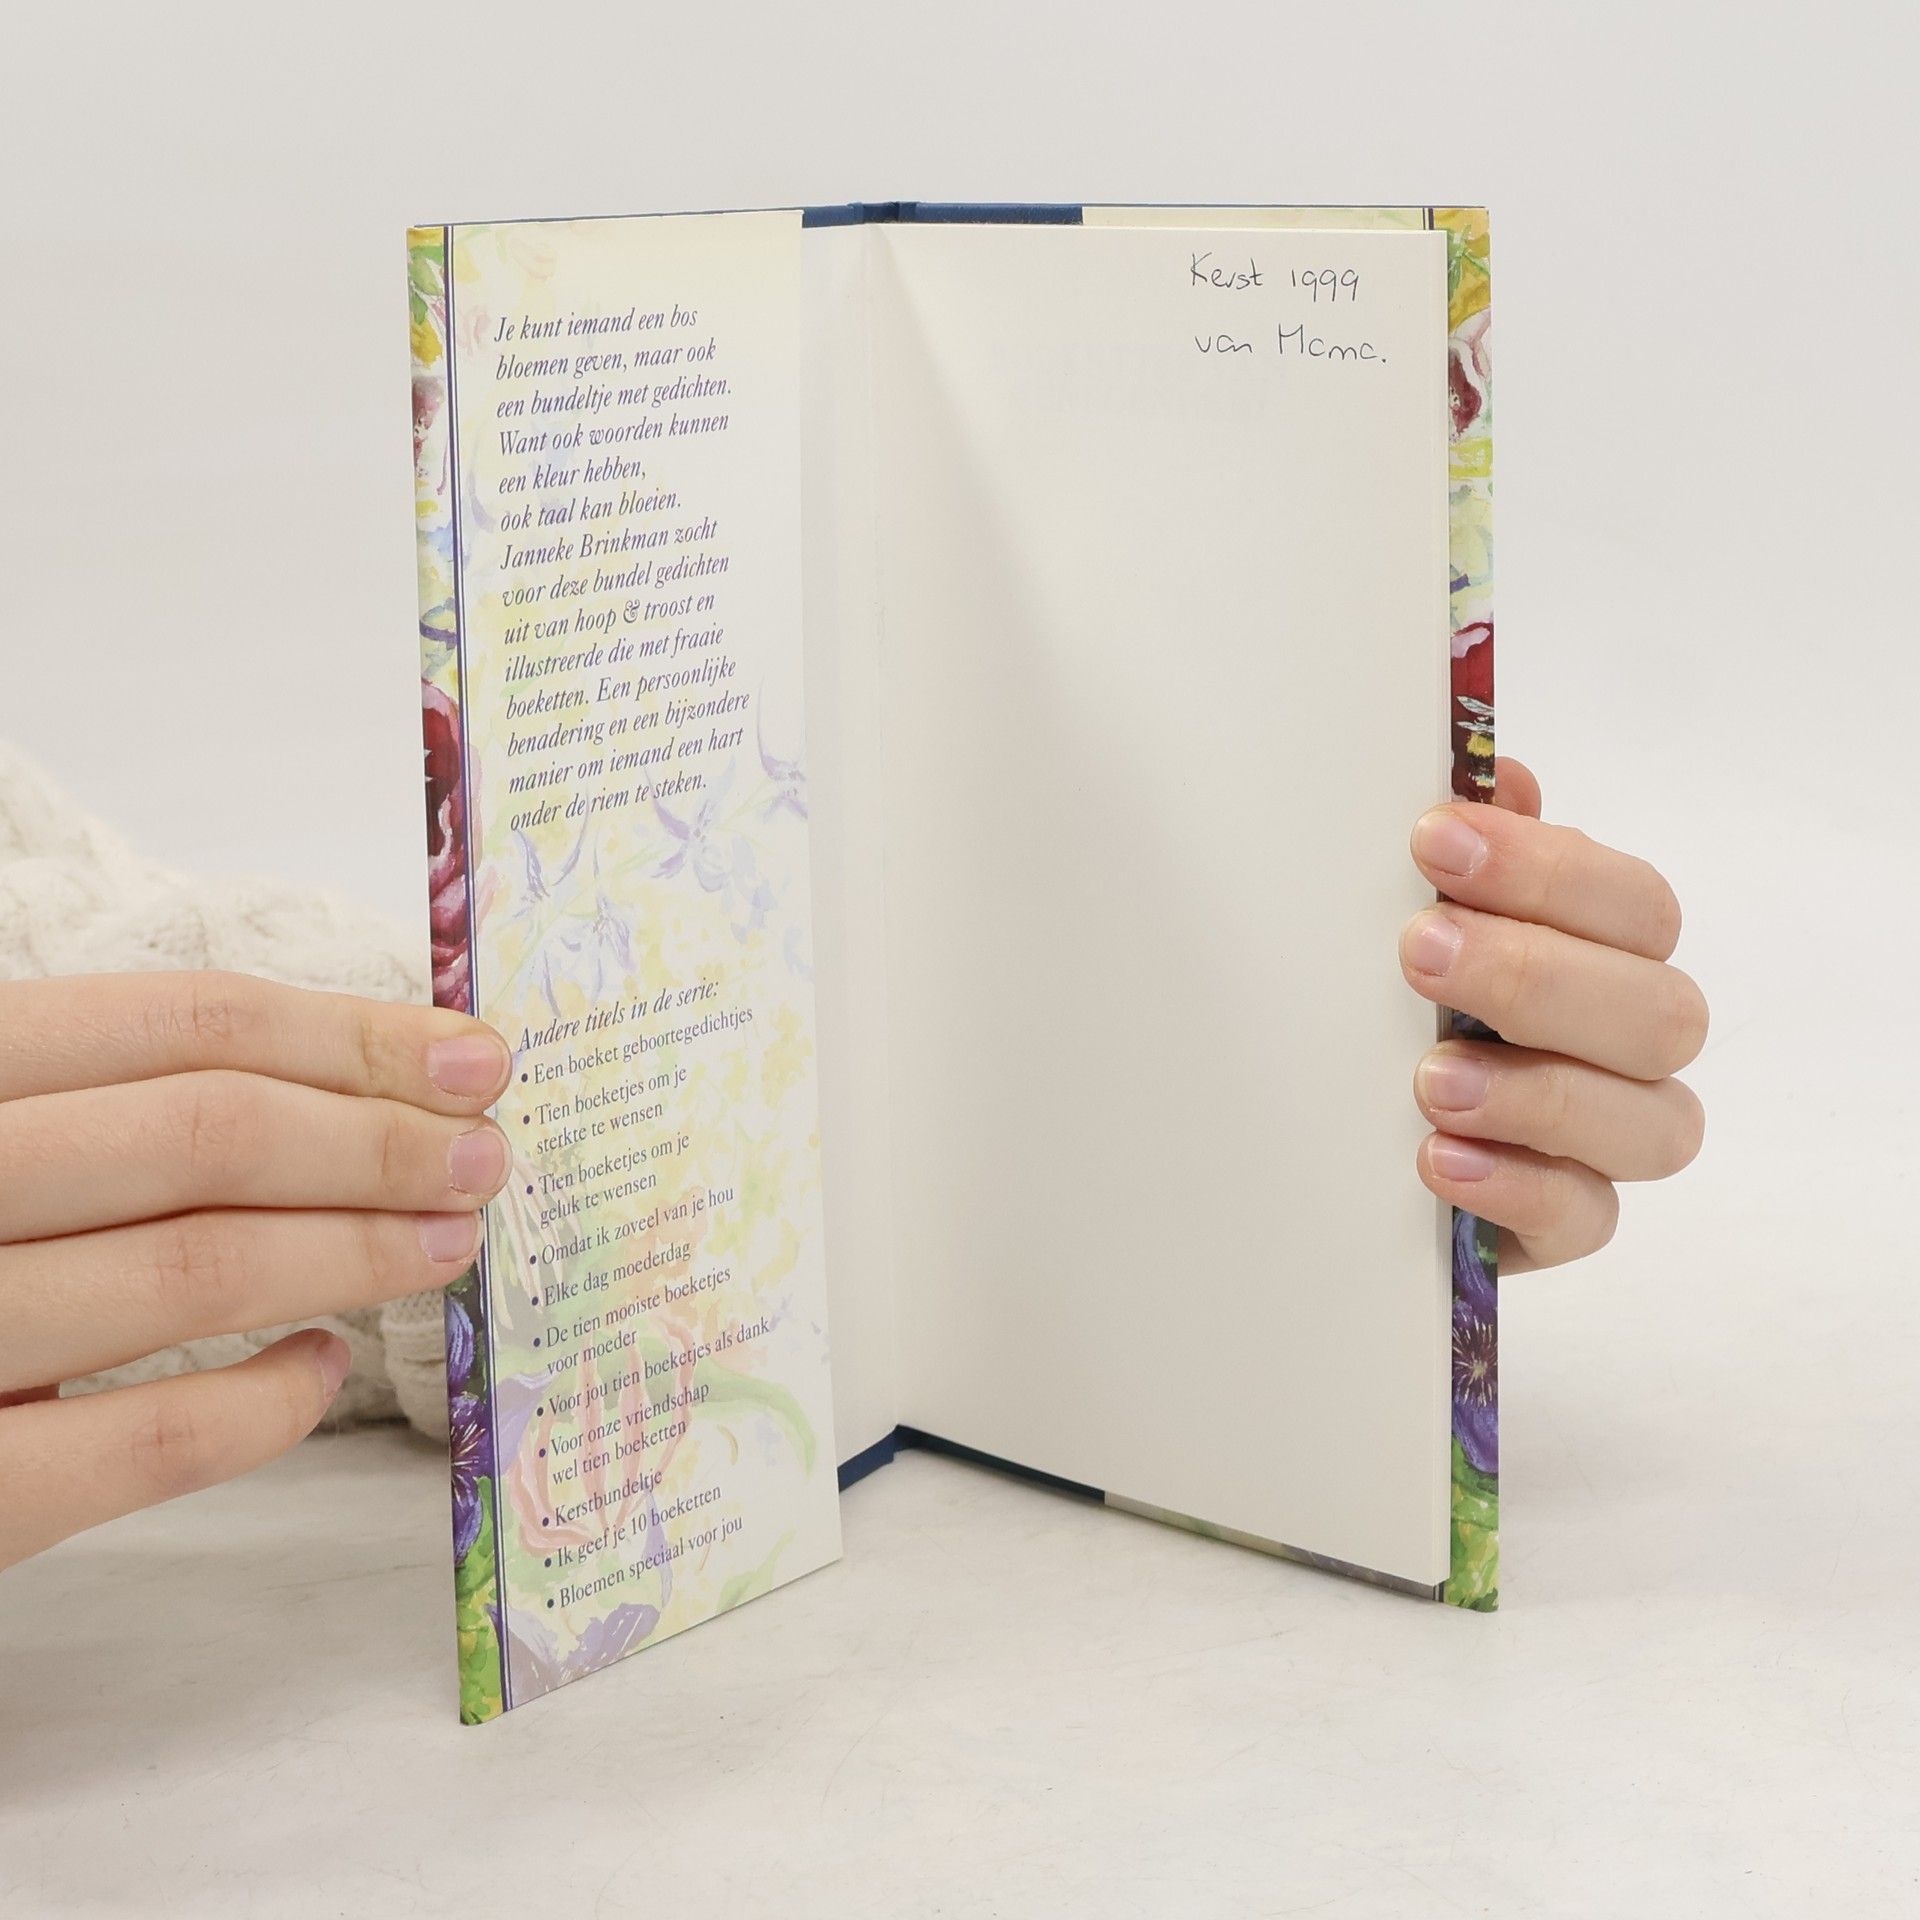 Je kunt iemand een bos
bloemen geven, maar ook
een bundeltje met gedichten.
Want ook woorden kunnen
een kleur hebben,
ook taal kan bloeien.
Janneke Brinkman zocht
voor deze bundel gedichten
uit van hoop & troost en
illustreerde die met fraaie
boeketten. Een persoonlijke
benadering en een bijzondere
manier om iemand een hart
onder de riem te steken.
Andere titels in de serie:
• Een boeket geboortegedichtjes
• Tien boeketjes om je
sterkte te wensen
• Tien boeketjes om je
geluk te wensen
• Omdat ik zoveel van je hou
• Elke dag moederdag
• De tien mooiste boeketjes
voor moeder
• Voor jou tien boeketjes als dank
• Voor onze vriendschap
wel tien boeketten
• Kerstbundeltje
• Ik geef je 10 boeketten
• Bloemen speciaal voor jou
Kerst 1999
van Mama.